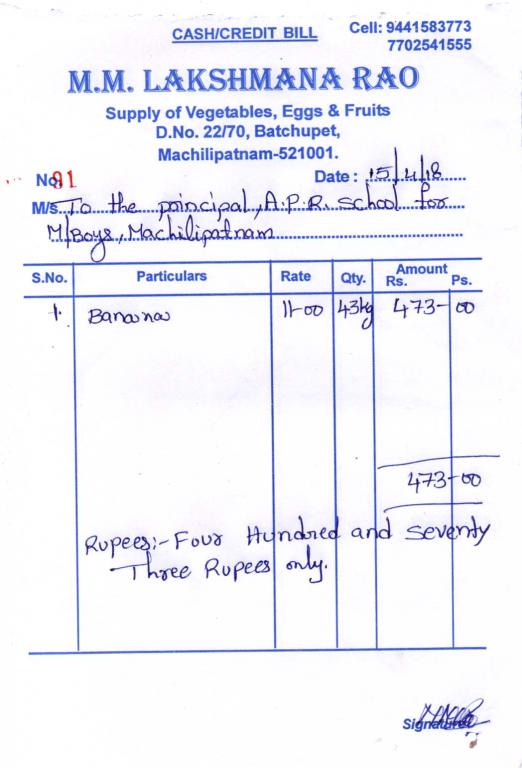 CASH/CREDIT BILL
Cell: 9441583773
7702541555
M.M. LAKSHMANA RAO
Supply of Vegetables, Eggs & Fruits
D.No. 22/70, Batchupet,
Machilipatnam-521001.
No. 81 Date : 15/4/18
M/s. To the principal, A.P.R. school for
M/Boys, Machilipatnam
S.No. Particulars Rate Qty. Amount Rs. Ps.
1. Banana 11-00 43kg 473-00
473-00
Rupees:- Four Hundred and seventy
Three Rupees only.
Signature